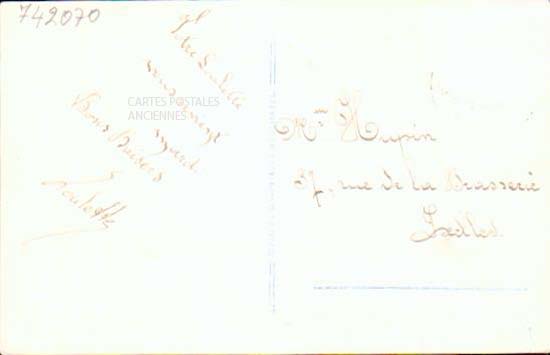 742070
CARTES POSTALES
ANCIENNES
mardi
Bons Baisers
Paulette
Mme Hupin
37, rue de la Brasserie
Ixelles.